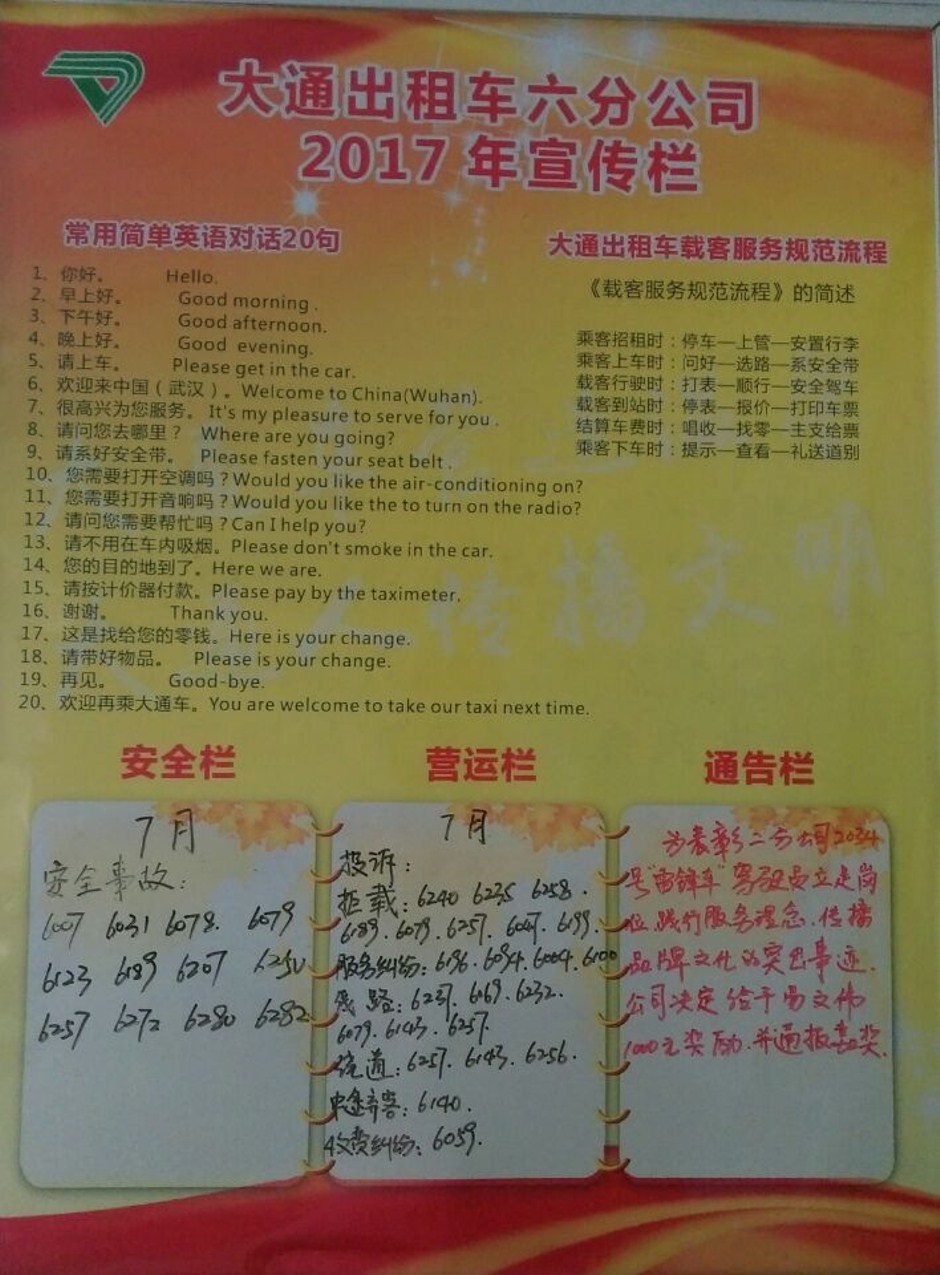 大通出租车六分公司
2017年宣传栏
常用简单英语对话20句
1、你好。 Hello.
2、早上好。 Good morning .
3、下午好。 Good afternoon.
4、晚上好。 Good evening.
5、请上车。 Please get in the car.
6、欢迎来中国（武汉）。Welcome to China(Wuhan).
7、很高兴为您服务。It's my pleasure to serve for you .
8、请问您去哪里？ Where are you going?
9、请系好安全带。 Please fasten your seat belt .
10、您需要打开空调吗？Would you like the air-conditioning on?
11、您需要打开音响吗？Would you like the to turn on the radio?
12、请问您需要帮忙吗？Can I help you?
13、请不用在车内吸烟。Please don't smoke in the car.
14、您的目的地到了。Here we are.
15、请按计价器付款。Please pay by the taximeter.
16、谢谢。 Thank you.
17、这是找给您的零钱。Here is your change.
18、请带好物品。 Please is your change.
19、再见。 Good-bye.
20、欢迎再乘大通车。You are welcome to take our taxi next time.
大通出租车载客服务规范流程
《载客服务规范流程》的简述
乘客招租时：停车—上管—安置行李
乘客上车时：问好—选路—系安全带
载客行驶时：打表—顺行—安全驾车
载客到站时：停表—报价—打印车票
结算车费时：唱收—找零—主支给票
乘客下车时：提示—查看—礼送道别
传播文明
安全栏
7月
安全事故：
6007 6031 6078. 6079
6123 6189 6207 6250
6257 6272 6280 6282
营运栏
7月
投诉：
拒载：6240 6235 6258.
6189.6079.6257.6047.6199.
服务纠纷：6196.6094.6064.6100
线路：6237.6169.6232.
6079.6143.6257.
绕道：6257.6143.6256.
中途弃客：6140.
收费纠纷：6059.
通告栏
为表彰二分公司2034
号"雷锋车"驾驶员立足岗
位,践行服务理念.传播
品牌文化的突出事迹.
公司决定给于易文伟
1000元奖励.并通报嘉奖.